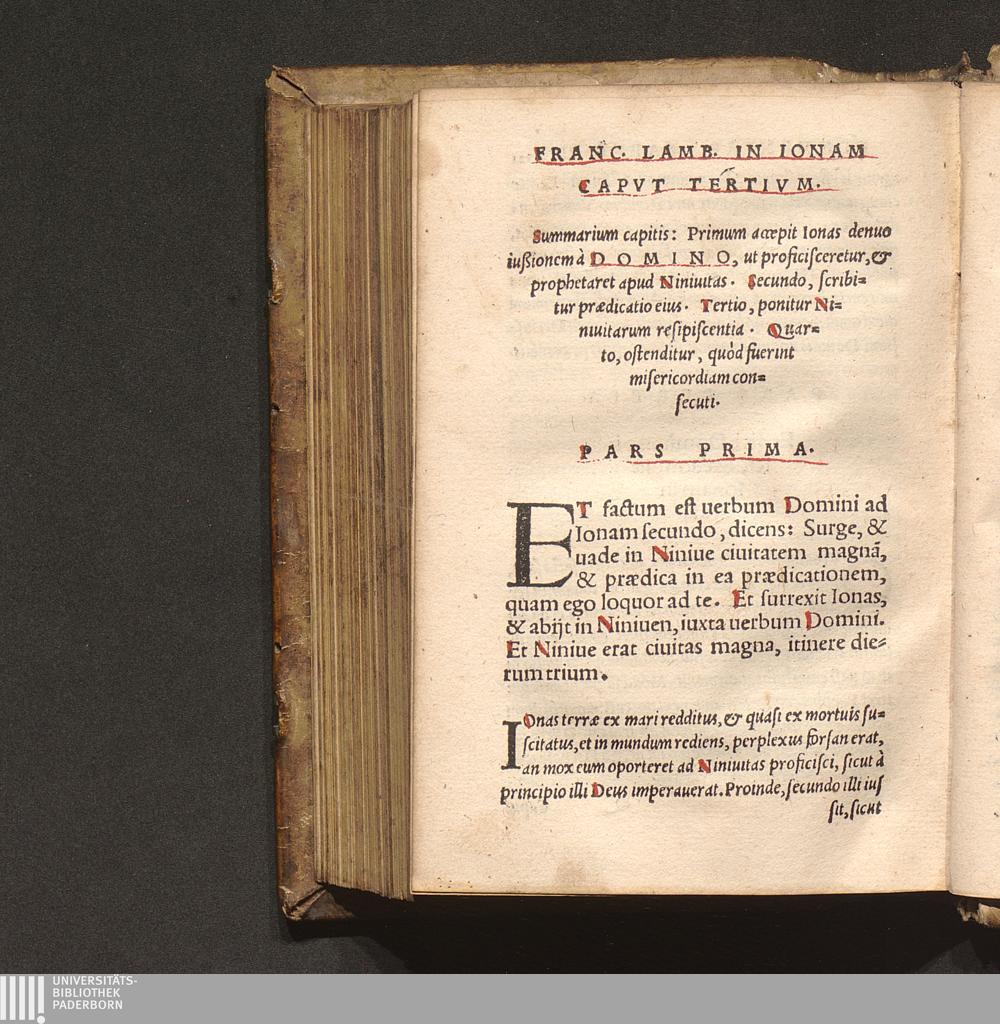 FRANC. LAMB. IN IONAM
CAPVT TERTIVM.
Summarium capitis: Primum accepit Ionas denuo
iußionem à DOMINO, ut proficiſceretur, &
prophetaret apud Niniuitas. Secundo, ſcribi=
tur prædicatio eius. Tertio, ponitur Ni=
niuitarum reſipiſcentia. Quar=
to, oſtenditur, quòd fuerint
miſericordiam con=
ſecuti.
PARS PRIMA.
ET factum eſt uerbum Domini ad
Ionam ſecundo, dicens: Surge, &
uade in Niniue ciuitatem magnã,
& prædica in ea prædicationem,
quam ego loquor ad te. Et ſurrexit Ionas,
& abijt in Niniuen, iuxta uerbum Domini.
Et Niniue erat ciuitas magna, itinere die=
rum trium.
IOnas terræ ex mari redditus, & quaſi ex mortuis ſu=
ſcitatus, et in mundum rediens, perplexus forſan erat,
an mox eum oporteret ad Niniuitas proficiſci, ſicut à
principio illi Deus imperauerat. Proinde, ſecundo illi iuſ
ſit, ſicut
UNIVERSITÄTS-
BIBLIOTHEK
PADERBORN